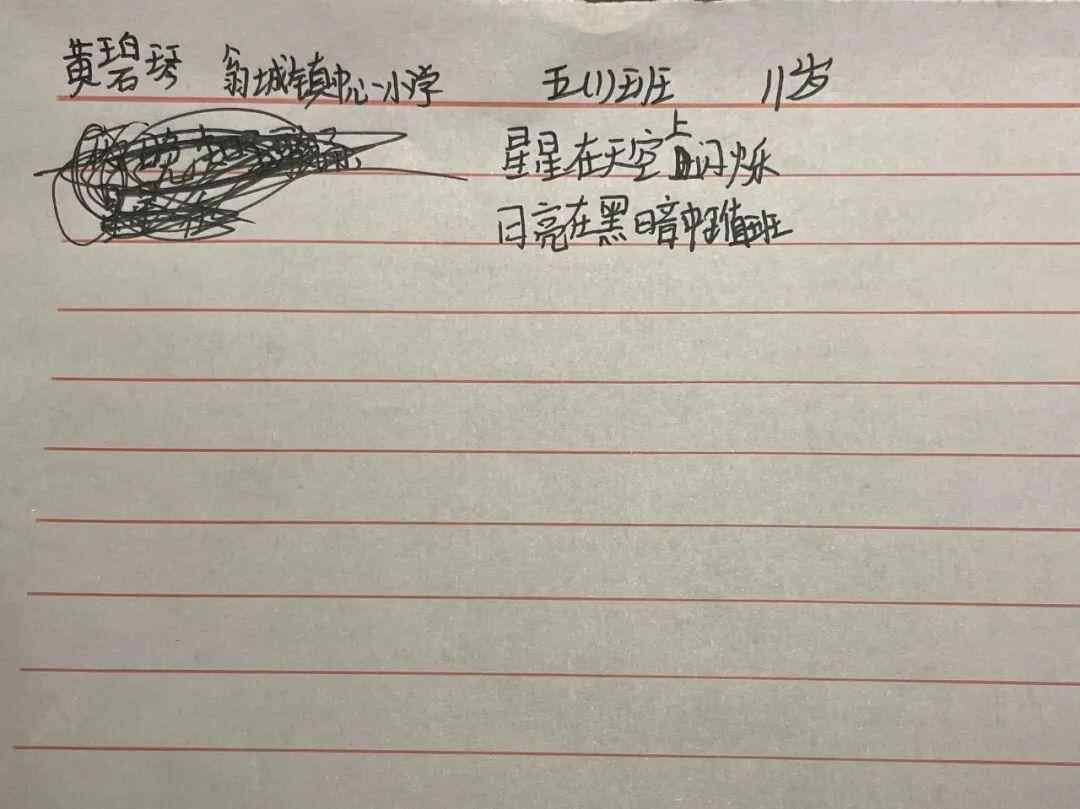 黄碧琴 翁城镇中心小学 五(1)班 11岁
星星在天空上闪烁
月亮在黑暗中值班